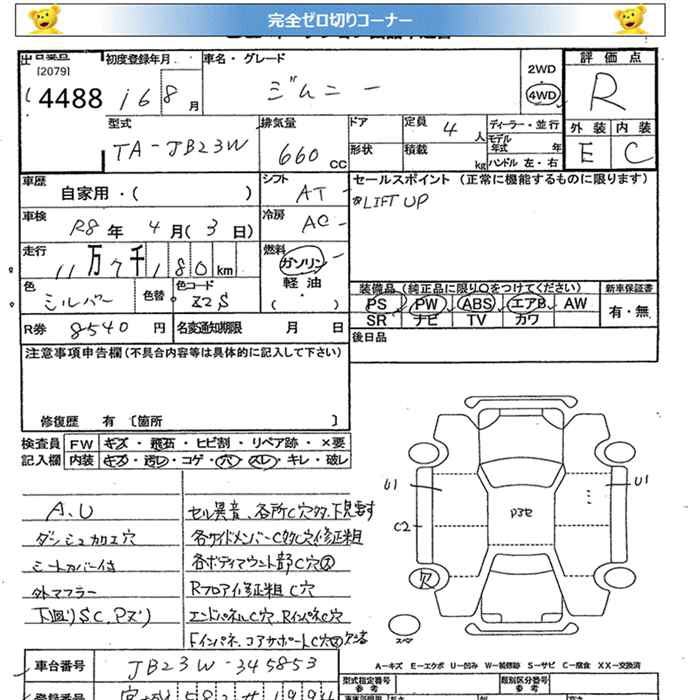 完全ゼロ切りコーナー
出品番号 初度登録年月 車名・グレード 評価点
[2079]
4488 16 8月 ジムニー 2WD 4WD R
型式 排気量 ドア 定員 4人 ディーラー・並行 外装 内装
TA-JB23W 660 CC 形状 積載 kg モデル年式 年 ハンドル 左・右 E C
車歴 自家用・( ) シフト AT セールスポイント (正常に機能するものに限ります)
車検 R8年 4月(3日) 冷房 AC LIFT UP
走行 11万7千180km 燃料 ガソリン・軽油・( )
装備品 (純正品に限り○をつけてください) 新車保証書
色 シルバー 色替 色コード Z2S PS PW ABS エアB AW 有・無
R券 8540円 名変通知期限 月 日 SR ナビ TV カワ
後日品
注意事項申告欄(不具合内容等は具体的に記入して下さい)
修復歴 有 [箇所 ]
検査員 FW キズ・飛石・ヒビ割・リペア跡・×要
記入欄 内装 キズ・汚レ・コゲ・穴・スレ・キレ・破レ
U1 U1
A.U セル異音、各所C穴多、下見要す
C2 P3セ
ダッシュ加工穴 各サイドメンバーC多C穴修正粗
シートカバー付 各ボディマウント部C穴大
外マフラー Rフロア修正粗C穴
下廻りSC、Pズリ エンドパネルC穴、RインパネC穴
Fインパネ、コアサポートC穴
スペア
A-キズ E-エクボ U-凹み W-補修跡 S-サビ C-腐食 XX-交換済
車台番号 JB23W-345853 型式指定番号 参考 類別区分番号 参考
登録番号 宮城 582